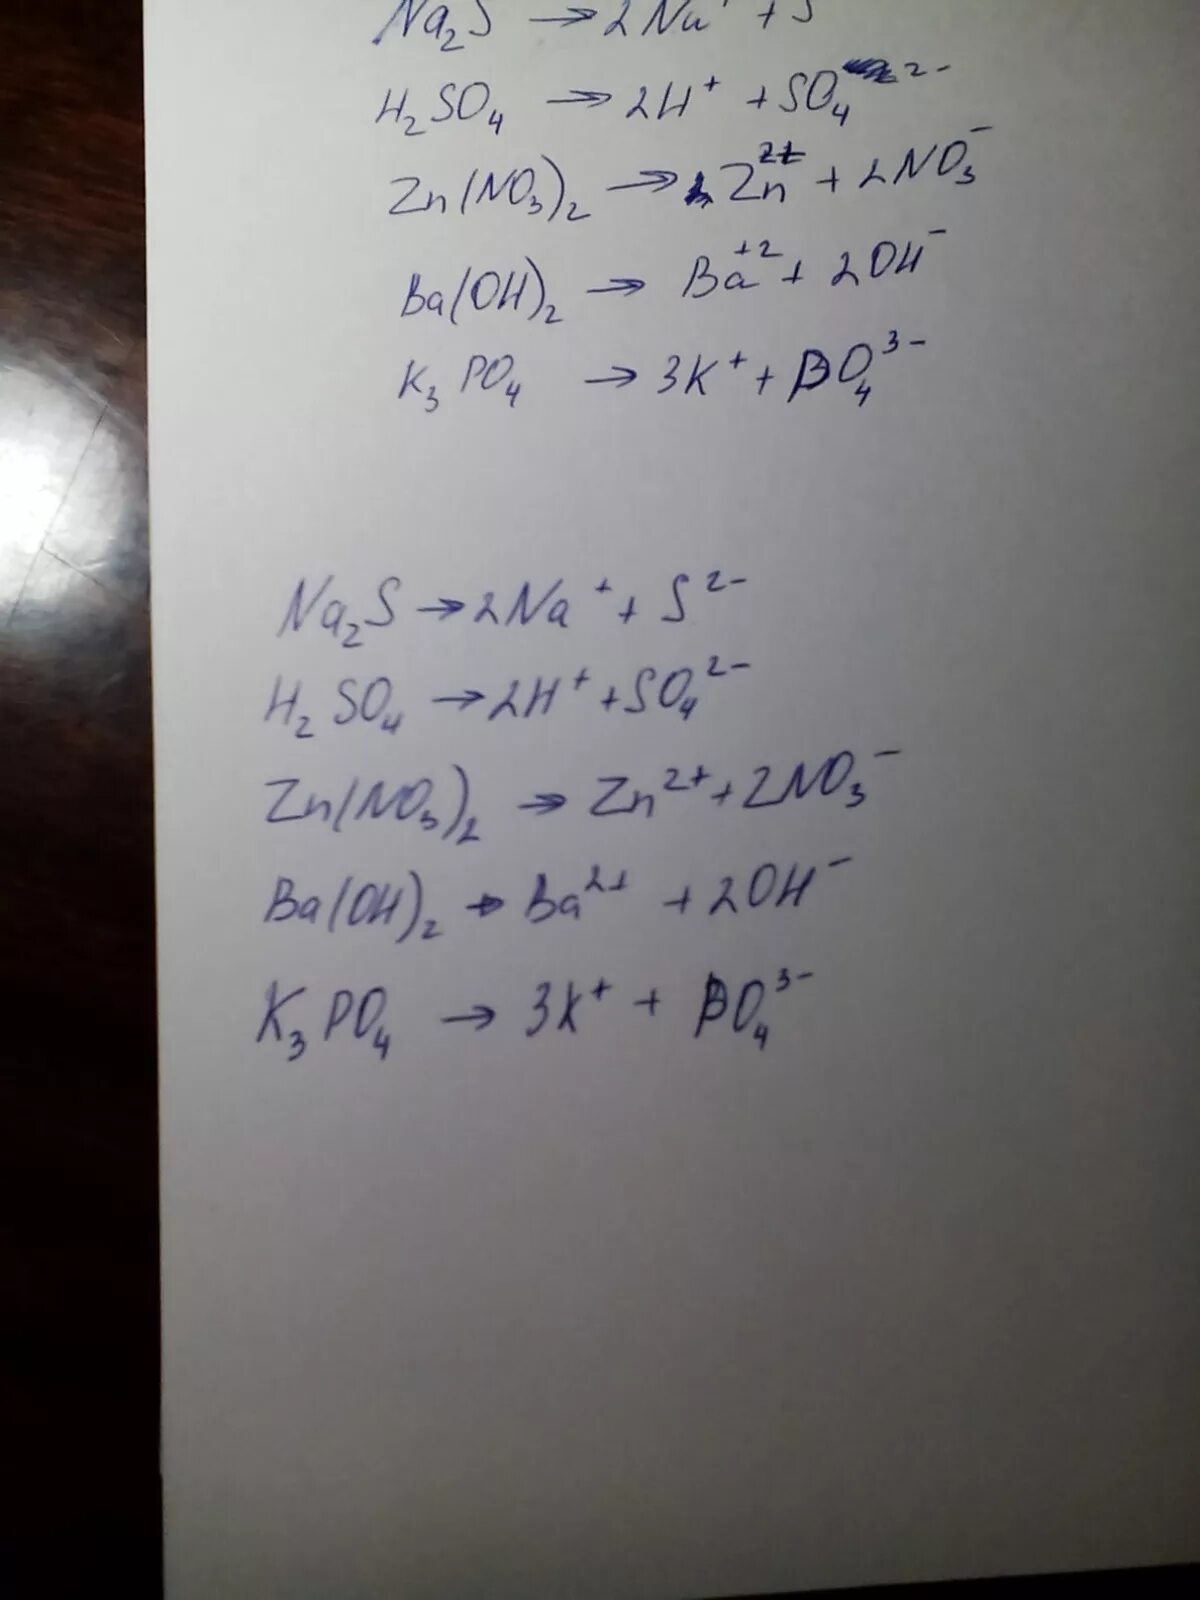 Na₂S → 2Na⁺ + S
H₂SO₄ → 2H⁺ + SO₄²⁻
Zn(NO₃)₂ → Zn²⁺ + 2NO₃⁻
Ba(OH)₂ → Ba⁺² + 2OH⁻
K₃PO₄ → 3K⁺ + PO₄³⁻
Na₂S → 2Na⁺ + S²⁻
H₂SO₄ → 2H⁺ + SO₄²⁻
Zn(NO₃)₂ → Zn²⁺ + 2NO₃⁻
Ba(OH)₂ → Ba²⁺ + 2OH⁻
K₃PO₄ → 3K⁺ + PO₄³⁻